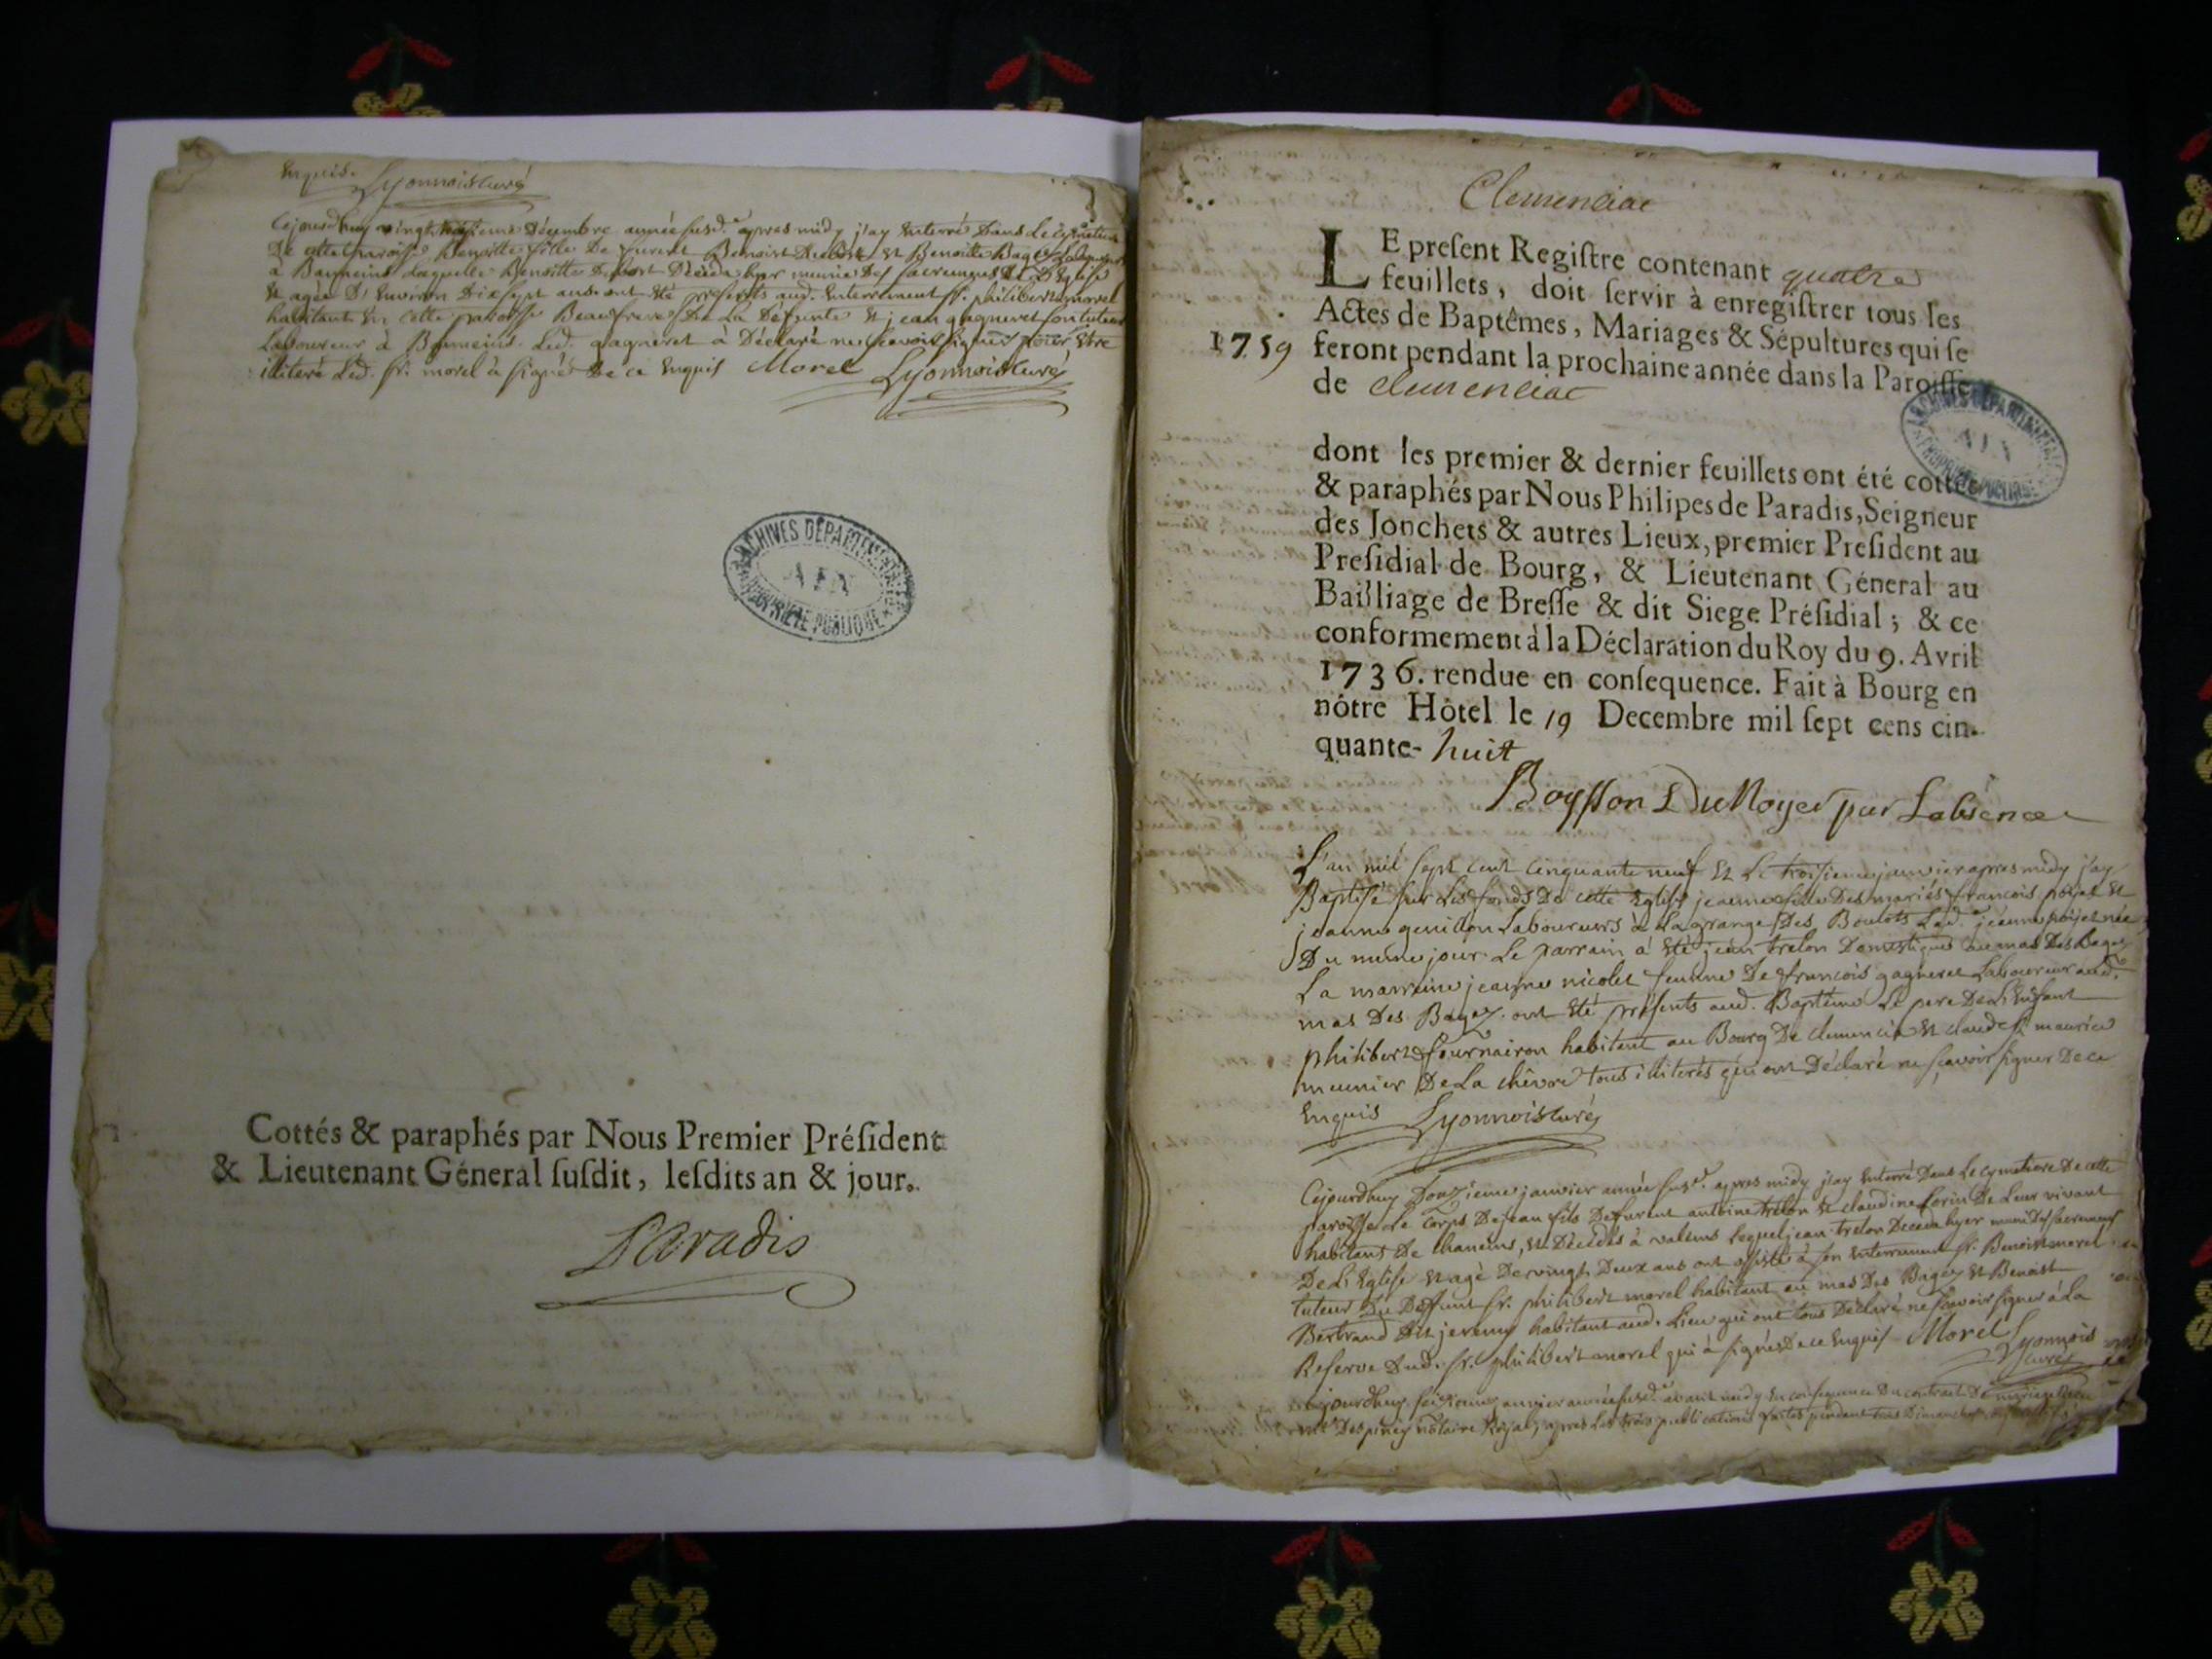 enquis. Lyonnois curé
Cejourdhuy vingt décembre année susd.e apres midy j'ay enterré dans le cymetiere
De cette paroisse Benoitte fille De furent Benoist Debost et Benoitte Bagey Laboureurs
à Baneins laquelle Benoitte Debost Décéda hyer munie Des sacrements De L'Eglise
et agée D'environ Dix sept ans. ont été présents aud. enterrement sr. philibert morel
habitant en cette paroisse Beaufrere De La Défunte et jean gagneret son tuteur
Laboureur à Baneins. Led. gagneret à Déclaré ne scavoir signer pour être
illiteré Led. sr. morel à signé De ce enquis Morel Lyonnois curé
ARCHIVES DÉPARTEMENTALES
AIN
PROPRIÉTÉ PUBLIQUE
Cottés & paraphés par Nous Premier Préſident
& Lieutenant Géneral ſuſdit, leſdits an & jour.
Paradis
Clemenciac
LE preſent Regiſtre contenant quatre
feuillets, doit ſervir à enregiſtrer tous les
Actes de Baptêmes, Mariages & Sépultures qui ſe
1759 feront pendant la prochaine année dans la Paroiſſe
de clemenciac
ARCHIVES DÉPARTEMENTALES
AIN
PROPRIÉTÉ PUBLIQUE
dont les premier & dernier feuillets ont été cottés
& paraphés par Nous Philipes de Paradis, Seigneur
des Jonchets & autres Lieux, premier Preſident au
Preſidial de Bourg, & Lieutenant Géneral au
Bailliage de Breſſe & dit Siege Préſidial; & ce
conformement à la Déclaration du Roy du 9. Avril
1736. rendue en conſequence. Fait à Bourg en
nôtre Hôtel le 19 Decembre mil ſept cens cin-
quante- huit
Boysson Du Noyer par Labsence
L'an mil sept cent cinquante neuf et le troisieme janvier apres midy j'ay
Baptisé sur les fonds De cette Eglise jeanne fille Des mariés francois poyet et
jeanne genillon Laboureurs à La grange Des Boulots Lad. jeanne poyet née
Du meme jour. Le parrain a été jean trelon Domestique au mas Des Bagey
La marraine jeanne nicolet femme De francois gagneret Laboureur aud.
mas Des Bagey. ont été présents aud. Baptême Le pere De L'Enfant
philibert fournairon habitant au Bourg De clemencia et claude maurice
meunier De La chêvre tous illiterés qui ont Déclaré ne scavoir signer De ce
enquis Lyonnois curé
Cejourdhuy Douzieme janvier année sus.e apres midy j'ay enterré Dans Le cymetiere De cette
paroisse Le Corps De jean fils De furent antoine trelon et claudine De Leur vivant
habitans De Chaneins, et Décédés à valeins Lequel jean trelon Deceda hyer muni Des sacremens
De L'Eglise et agé De vingt Deux ans ont assisté à son enterrement sr. Benoist morel
tuteur Du Deffunt sr. philibert morel habitant au mas Des Bagey et Benoist
Bertrand Dit jeremy habitant aud. Lieu qui ont tous Déclaré ne scavoir signer à La
Reserve Dud. sr. philibert morel qui à signé De ce enquis Morel Lyonnois
curé
Cejourdhuy seizieme janvier année susd.e avant midy en consequence Du contrat De mariage Recu
me Despiney notaire Royal, apres Les trois publications faites pendant trois Dimanches